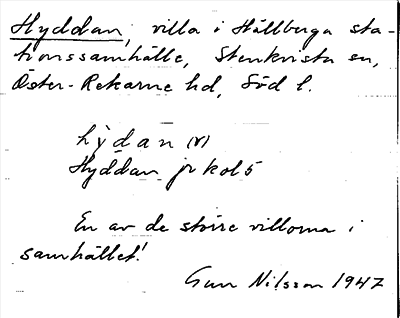 Hyddan, villa i Hällberga sta-
tionssamhälle, Stenkvista sn,
Öster-Rekarne hd, Söd l.
hỳdan (r)
Hyddan jr kol 5
En av de större villorna i
samhället!
Gun Nilsson 1947